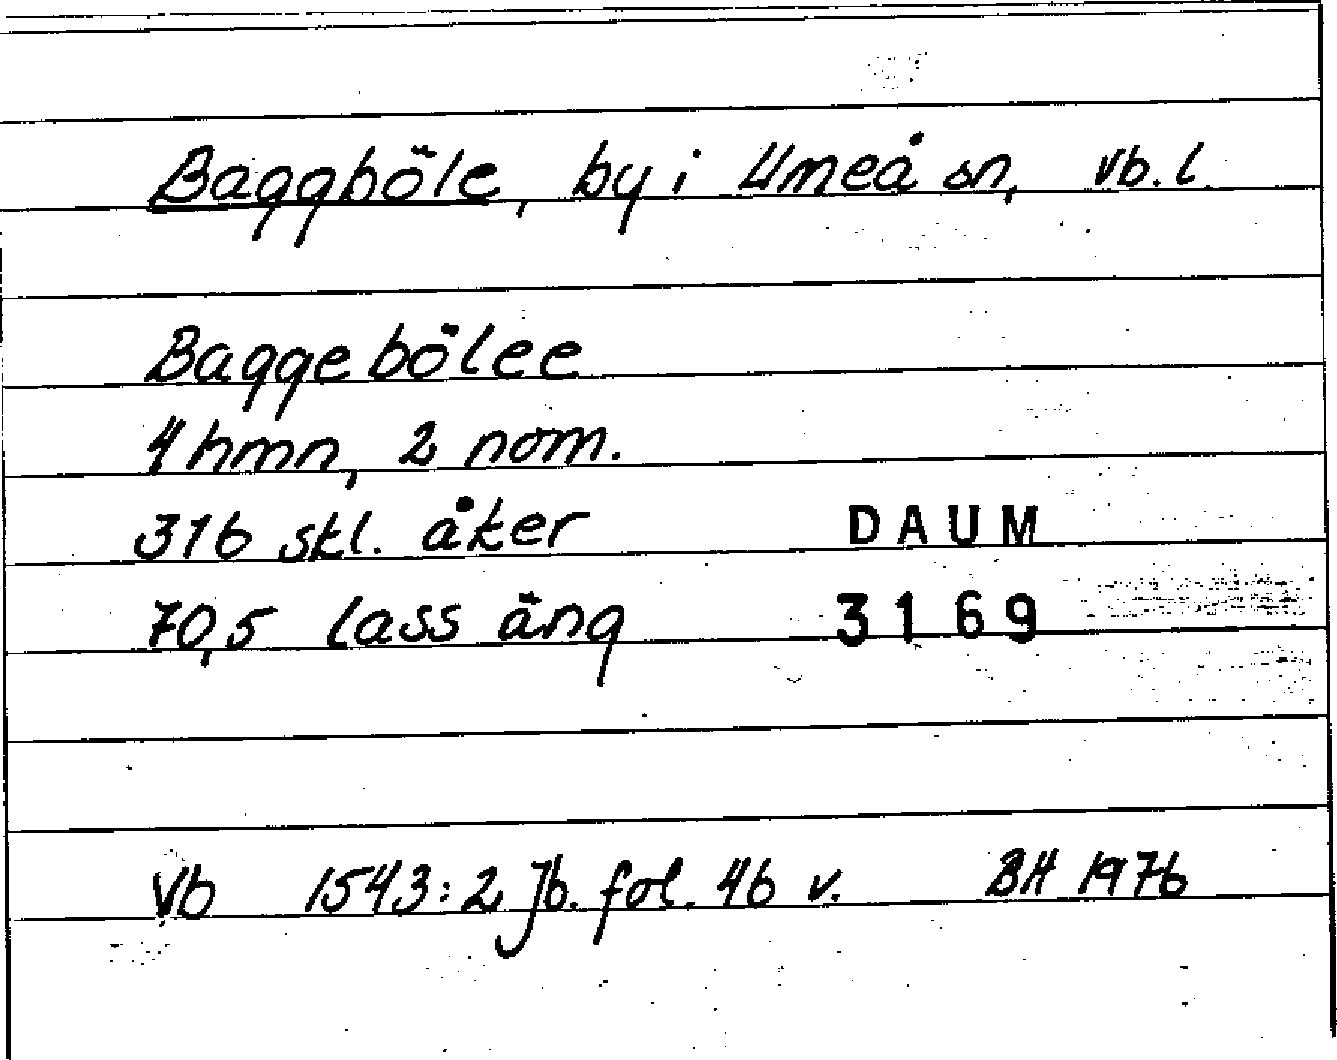 Baggböle, by i Umeå sn, Vb. l.
Baggebölee
4 hmn, 2 nom.
316 skl. åker
DAUM
70,5 lass äng
3169
Vb 1543:2 Jb. fol. 46 v. BH 1976